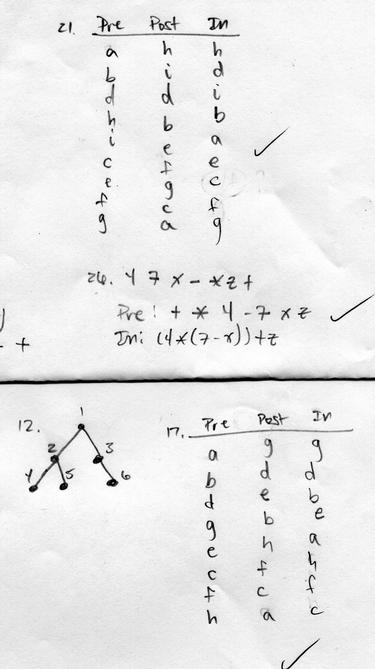 21. Pre Post In
a h h
b i d
d d i
h b b
i e a
c f e
e g c
f c f
g a g
26. 4 7 x - * z +
Pre: + * 4 - 7 x z
+
In: (4*(7-x))+z
12.
1
2 3
4 5 6
17. Pre Post In
a g g
b d d
d e b
g b e
e h a
c f h
f c f
h a c